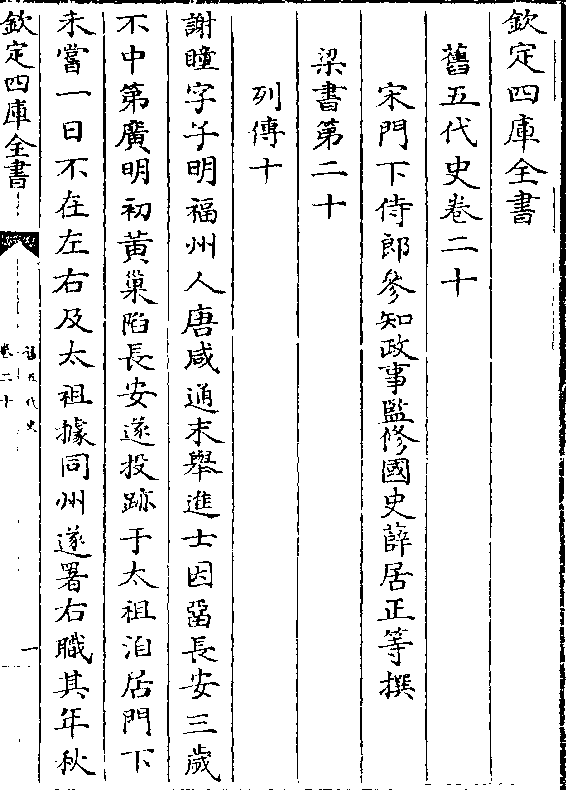 欽定四庫全書
舊五代史卷二十
宋門下侍郎參知政事監修國史薛居正等撰
梁書第二十
列傳十
謝瞳字子明福州人唐咸通末舉進士因留長安三歲
不中第廣明初黃巢陷長安遂投跡于太祖洎居門下
未嘗一日不在左右及太祖據同州遂署右職其年秋
欽定四庫全書
舊五代史
卷二十
一